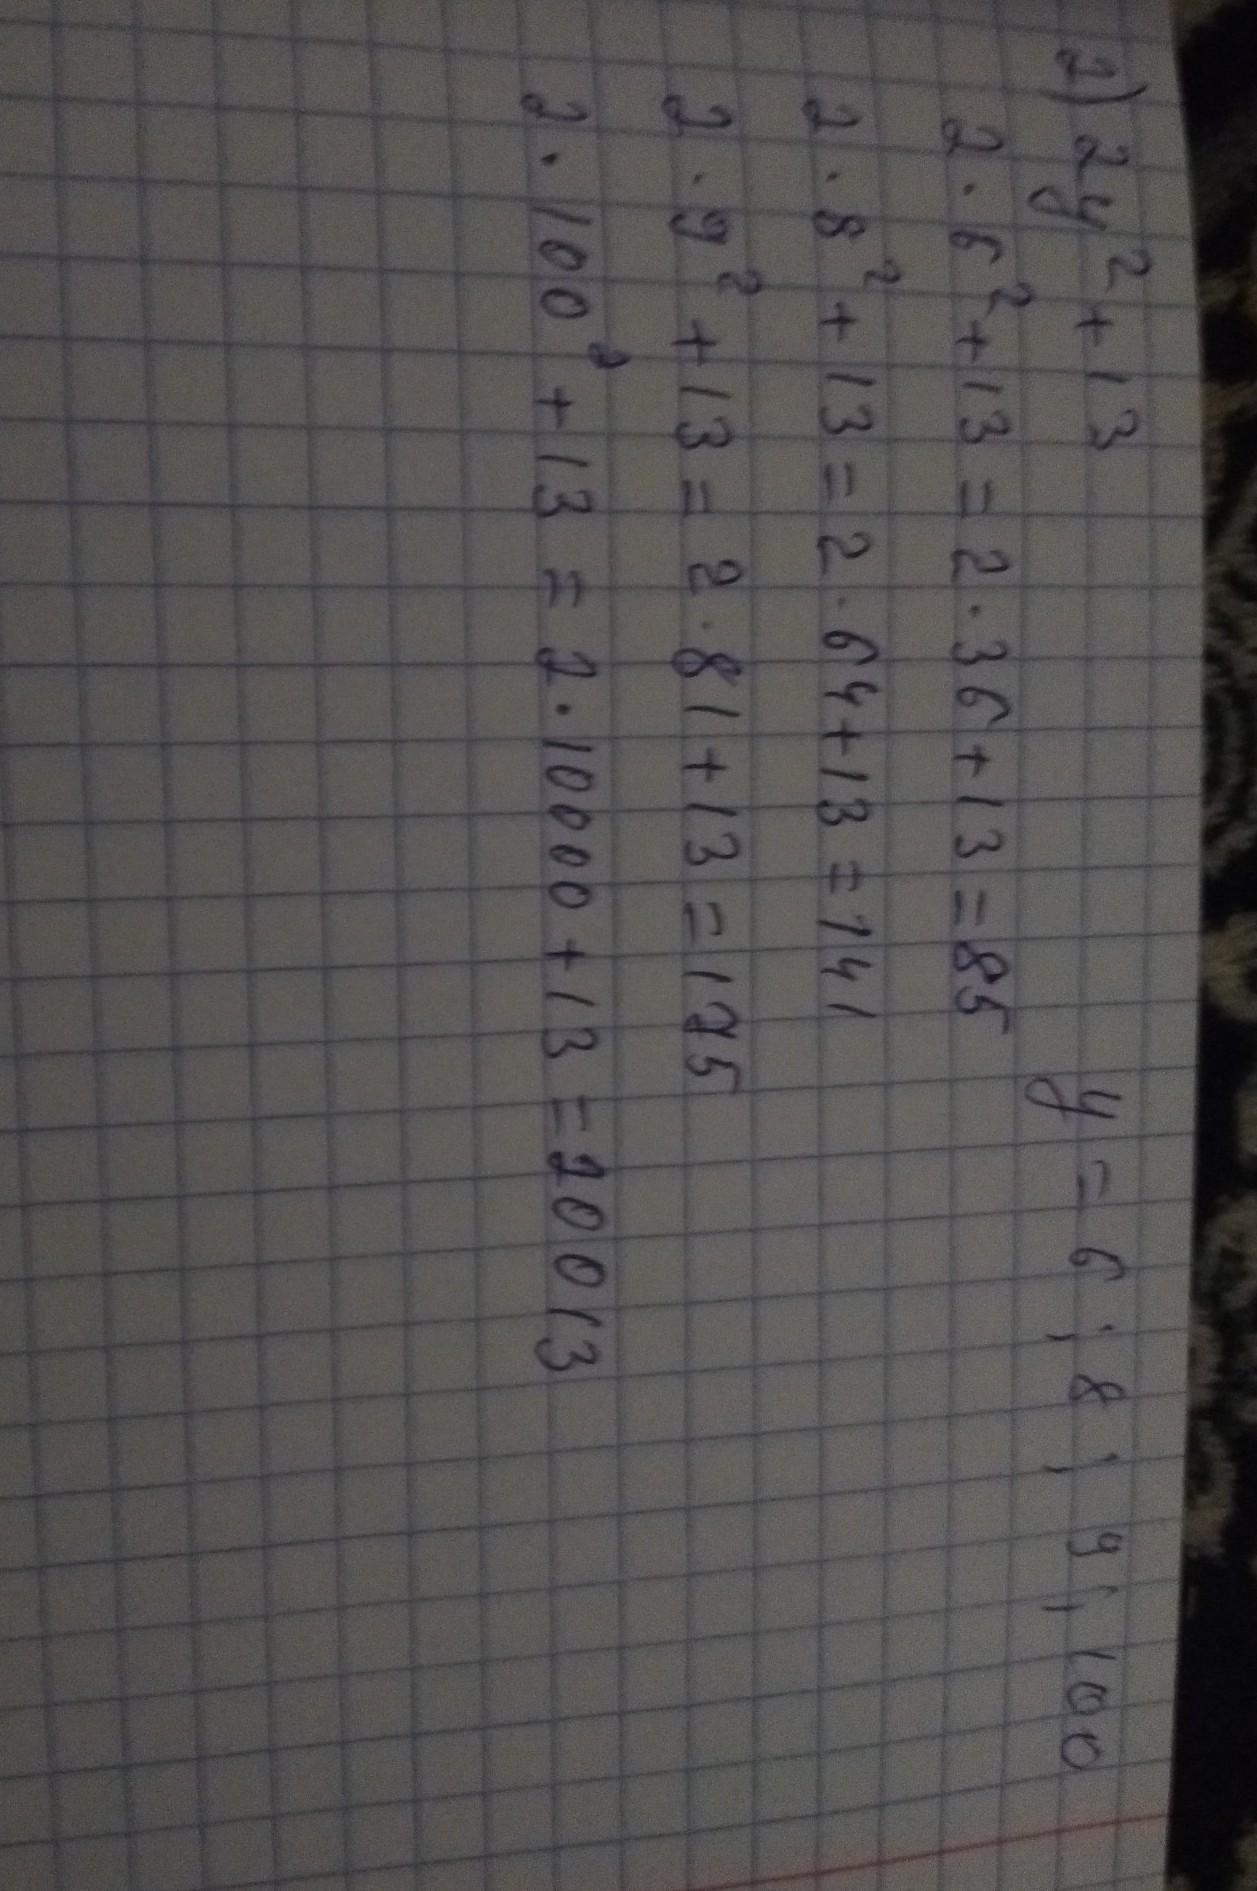 2) 2y² + 13 y = 6; 8; 9; 100
2 · 6² + 13 = 2 · 36 + 13 = 85
2 · 8² + 13 = 2 · 64 + 13 = 141
2 · 9² + 13 = 2 · 81 + 13 = 175
2 · 100² + 13 = 2 · 10000 + 13 = 20013